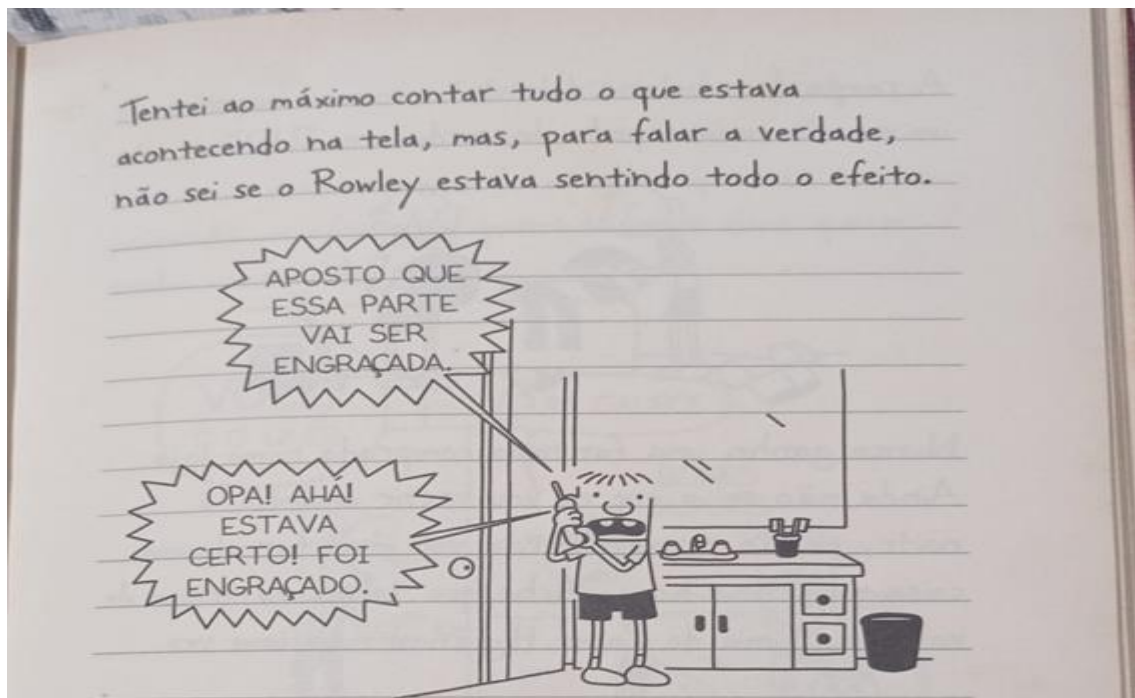 Tentei ao máximo contar tudo o que estava
acontecendo na tela, mas, para falar a verdade,
não sei se o Rowley estava sentindo todo o efeito.
APOSTO QUE
ESSA PARTE
VAI SER
ENGRAÇADA.
OPA! AHÁ!
ESTAVA
CERTO! FOI
ENGRAÇADO.